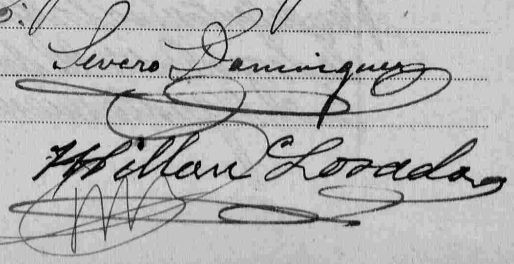 Severo Dominguez
Willan Losada